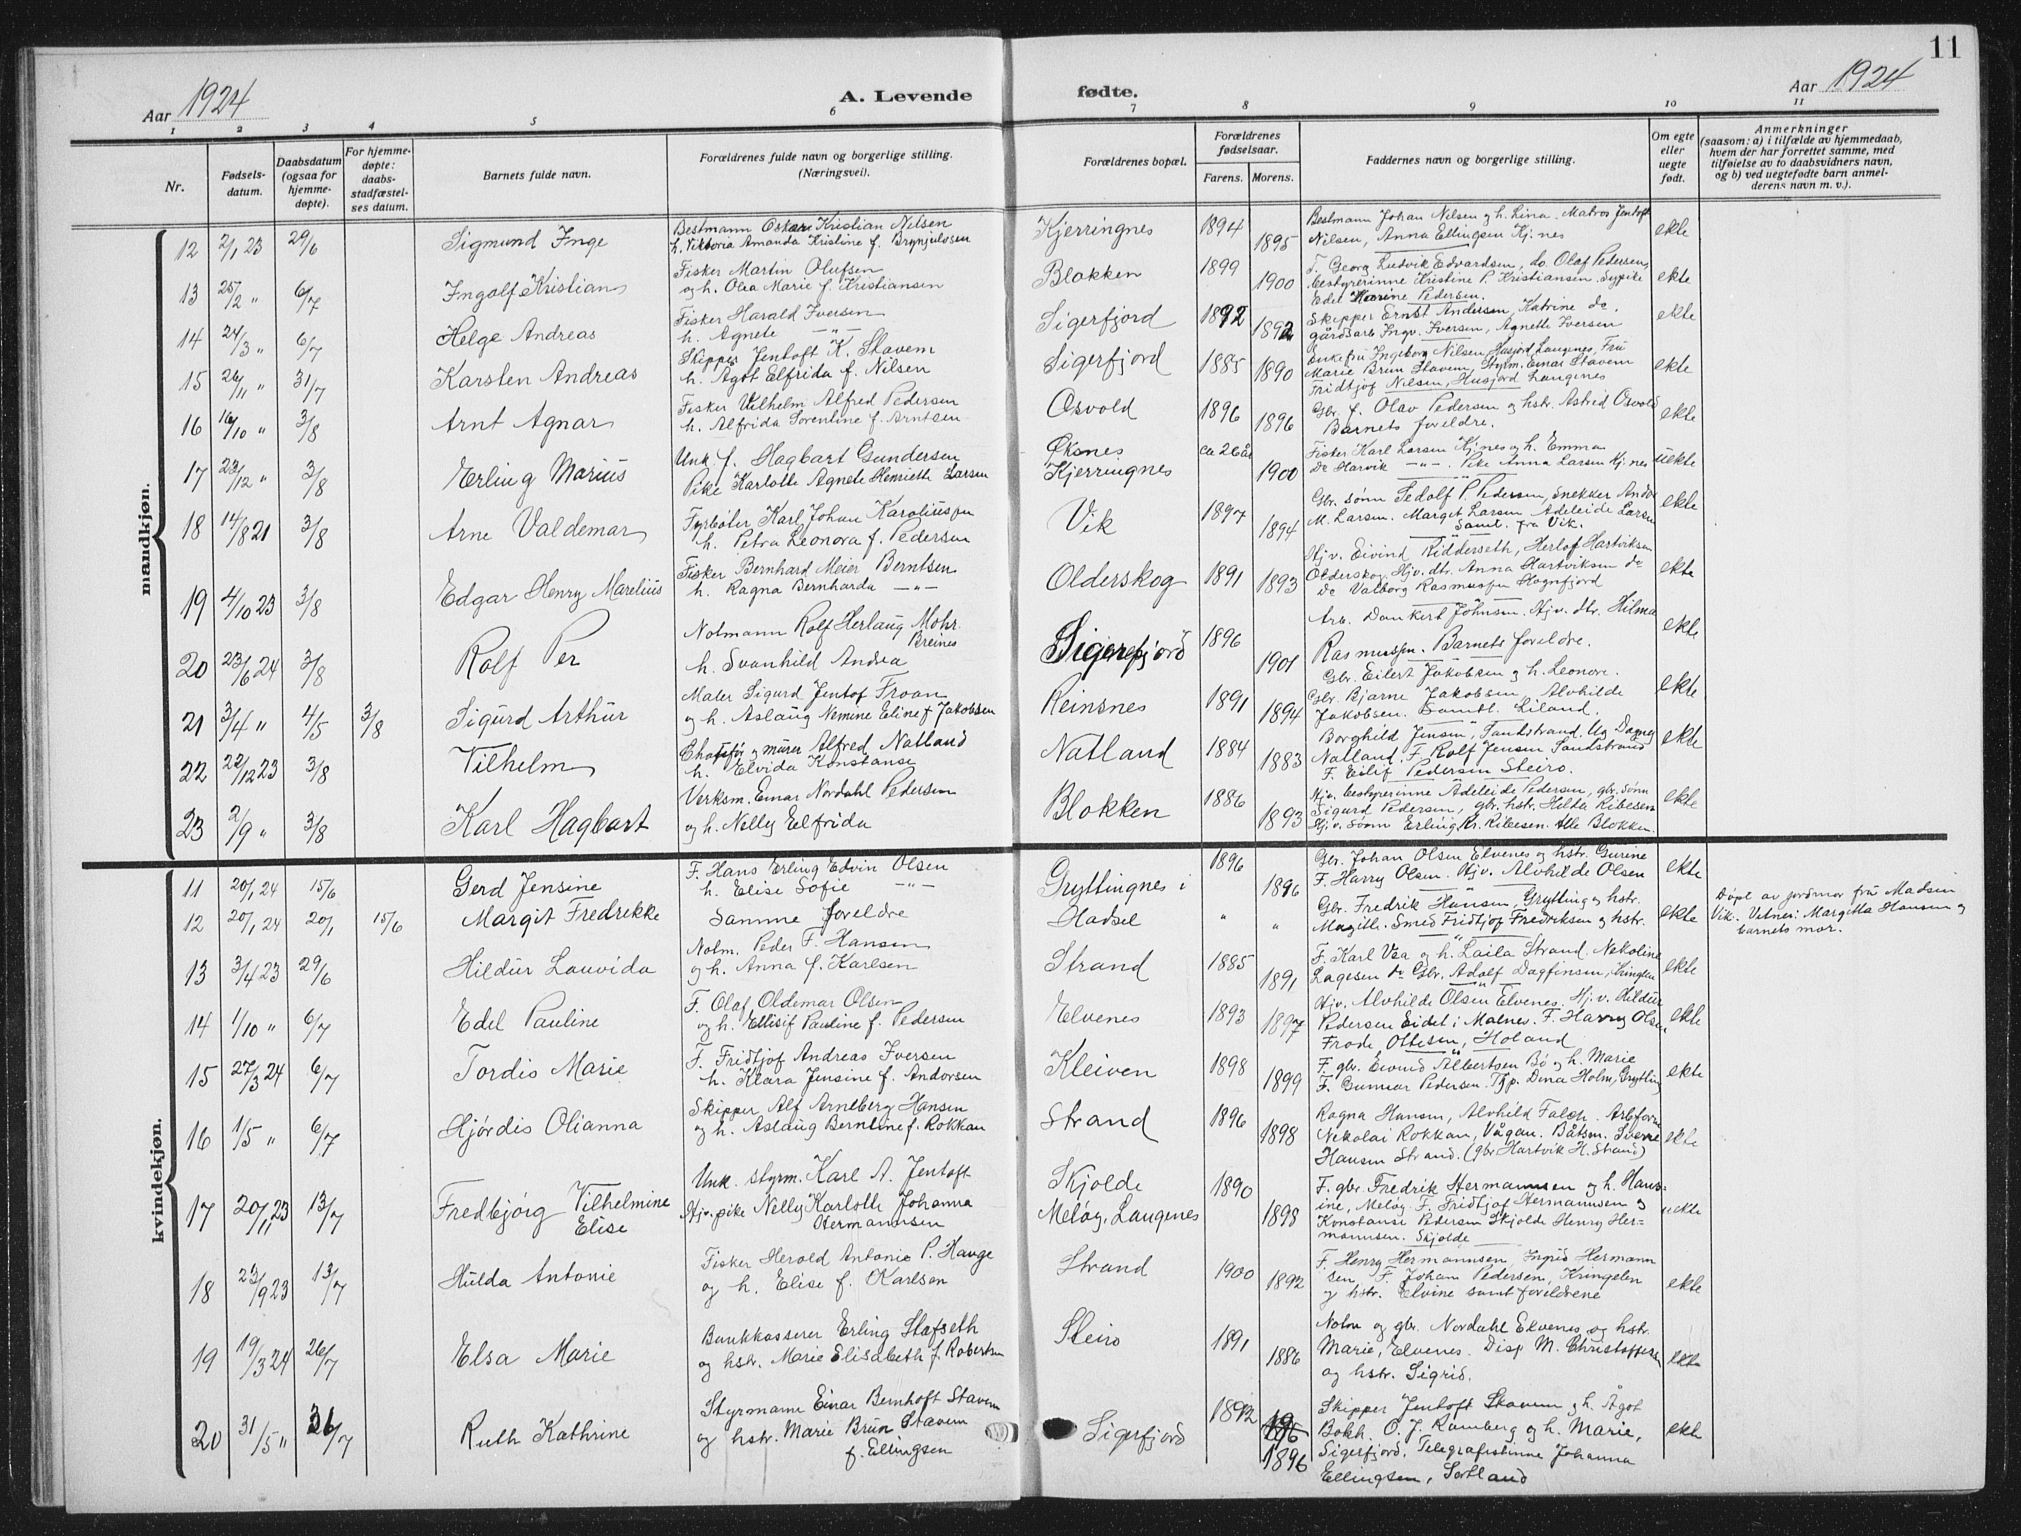 11
Aar 1924
A. Levende
fødte.
Aar 1924
1 2 3 4 5 6 7 8 9 10 11
Nr.
Fødsels-
datum.
Daabsdatum
(ogsaa for
hjemme-
døpte).
For hjemme-
døpte:
daabs-
stadfæstel-
ses datum.
Barnets fulde navn.
Forældrenes fulde navn og borgerlige stilling.
(Næringsvei).
Forældrenes bopæl.
Forældrenes
fødselsaar.
Farens. Morens.
Faddernes navn og borgerlige stilling.
Om egte
eller
uegte
født.
Anmerkninger
(saasom: a) i tilfælde av hjemmedaab,
hvem der har forrettet samme, med
tilføielse av to daabsvidners navn,
og b) ved uegtefødte barn anmel-
derens navn m. v.).
mandkjøn.
12 2/1 23 29/6 Sigmund Inge
Bestmann Oskar Kristian Nilsen
h. Viktoria Amanda Kristine f. Brynjulvsen
Kjerringnes 1894 1895
Bestmann Johan Nilsen og h. Lina. Matros Jentoft
Nilsen, Anna Ellingsen Kj.nes
ekte
13 25/2 " 6/7 Ingolf Kristian
Fisker Martin Olufsen
og h. Olea Marie f. Kristiansen
Blokken 1899 1900
F. Georg Ludvik Edvardsen, do. Olaf Pedersen,
bestyrerinne Kristine P. Kristiansen. Sypike
Edel Pedersen.
ekte
14 24/3 " 6/7 Helge Andreas
Fisker Harald Iversen
h. Agnete —"—
Sigerfjord 1892 1892
Skipper Ernst Andersen, Katrine do.
gårdsarb. Ingv. Iversen, Agnette Iversen
ekte
15 26/11 " 31/7 Karsten Andreas
Skipper Jentoft K. Stavem
h. Ågot Elfrida f. Nilsen
Sigerfjord 1885 1890
Enkefru Ingeborg Nilsen, Husjord Langenes, Fru
Marie Brun Stavem, Styrm. Einar Stavem
Fridtjof Nilsen, Husjord Langenes
ekte
16 16/10 " 3/8 Arnt Agnar
Fisker Vilhelm Alfred Pedersen
h. Alfrida Sorentine f. Arntsen
Osvold 1896 1896
Gbr. f. Olav Pedersen og hstr. Astrid Osvold
Barnets foreldre.
ekte
17 23/12 " 3/8 Erling Marius
Unk. f. Hagbart Gundersen
Pike Karlotte Agnete Henriette Larsen
Øksnes
Kjerringnes
ca 26 år 1900
Fisker Karl Larsen Kj.nes og h. Emma
Do Harvik —"—. Pike Anna Larsen Kj.nes
uekte
18 14/8 21 3/8 Arne Valdemar
Fyrbøter Karl Johan Karoliussen
h. Petra Leonora f. Pedersen
Vik 1897 1894
Gbr. sønn Tedolf P. Pedersen, Snekker Andor
M. Larsen. Margit Larsen Adeleide Larsen
Samt. fra Vik.
ekte
19 4/10 23 3/8 Edgar Henry Marelius
Fisker Bernhard Meier Berntsen
h. Ragna Bernharda —"—
Olderskog 1891 1893
Hjv. Eivind Ridderseth, Herlof Hartviksen
Olderskog. Hjv. dtr. Anna Hartviksen do
Do Valborg Rasmussen Hognfjord
ekte
20 23/6 24 3/8 Rolf Per
Notmann Rolf Herlaug Mohr
Breines
h. Svanhild Andrea
Sigerfjord 1896 1901
Arb. Dankert Johnsen. Hjv. dtr. Hilma
Rasmussen. Barnets foreldre.
ekte
21 3/4 " 4/5 3/8 Sigurd Arthur
Maler Sigurd Jentof Froan
og h. Aslaug Nemine Eline f Jakobsen
Reinsnes 1891 1894
Gbr. Eilert Jakobsen og h. Leonore.
Gbr. Bjarne Jakobsen, Alvhilde
Jakobsen. Samtl. Liland.
ekte
22 22/12 23 3/8 Vilhelm
Chaffør og murer Alfred Natland
h. Elvida Konstanse
Natland 1884 1883
Borghild Jensen, Sandstrand. Ug Dagny
Natland. F. Rolf Jensen Sandstrand
F. Eilif Pedersen Steiro.
ekte
23 2/9 " 3/8 Karl Hagbart
Verksm. Einar Nordahl Pedersen
og h. Nelly Elfrida
Blokken 1886 1893
Hjv. bestyrerinne Adeleide Pedersen, gbr. sønn
Sigurd Pedersen, gbr. hstr. Hilda Ribesen
Hjv. sønn Erling Kr. Ribesen. Alle Blokken.
ekte
kvindekjøn.
11 20/1 24 15/6 Gerd Jensine
F. Hans Erling Edvin Olsen
h. Elise Sofie —"—
Gryttingnes i 1896 1896
Gbr. Johan Olsen Elvenes og hstr. Gurine
F. Harry Olsen. Hjv. Alvhilde Olsen
ekte
12 20/1 24 20/1 15/6 Margit Fredrekke
Samme foreldre
Hadsel " "
Gbr. Fredrik Hansen, Grytting og hstr.
Magith. Smed Fridtjof Fredriksen og hstr.
ekte
Døpt av jordmor fru Madsen
Vik. Vitner: Margitta Hansen og
barnets mor.
13 3/4 23 29/6 Hildur Lovida
Notm. Peder F. Hansen
og h. Anna f. Karlsen
Strand 1885 1891
F. Karl Vea og h. Laila Strand. Nekoline
Lagesen do Gbr. Adolf Dagfinsen, Kringlen
ekte
14 1/10 " 6/7 Edel Pauline
F. Olaf Oldemar Olsen
og h. Ellisif Pauline f. Pedersen
Elvenes 1893 1897
Hjv. Alvhilde Olsen Elvenes. Hj.v. Hildur
Pedersen Eidet i Malnes. F. Harry Olsen
Frode Ottesen, Holand
ekte
15 27/3 24 6/7 Tordis Marie
F. Fridtjof Andreas Iversen
h. Klara Jensine f. Andorsen
Kleiven 1898 1899
F. gbr. Eivind Albertsen Bø og h. Marie
F. Gunnar Pedersen. Tjp. Dina Holm, Grytting
ekte
16 1/5 " 6/7 Hjördis Olianna
Skipper Alf Arneberg Hansen
og h. Aslaug Berntine f. Rokkan
Strand 1896 1898
Ragna Hansen, Alvhild Falch. Arbform
Nekolai Rokkan, Vågan. Båtsm. Sverre
Hansen Strand. (gbr Hartvik H. Strand)
ekte
17 20/1 23 13/7 Fredbjørg Vilhelmine
Elise
Unk. styrm. Karl A. Jentoft
Hjv. pike Nelly Karlotte Johanna
Hermannsen
Skjolde
Meløy, Langenes
1890 1898
F. gbr. Fredrik Hermannsen og h. Hans=
ine, Meløy. F. Fridtjof Hermannsen og
Konstanse Pedersen Skjolde Henry Her=
mannsen. Skjolde
uekte
18 23/9 23 13/7 Hulda Antonie
Fisker Herold Antonie P. Hauge
og h. Elise f. Karlsen
Strand 1900 1892
F. Henry Hermannsen, Ingrid Hermann
sen, F. Johan Pedersen, Kringelen
og hstr. Elvine samt foreldrene
ekte
19 19/3 24 26/7 Elsa Marie
Bankkasserer Erling Slafseth
og hstr. Marie Elisabeth f. Robertsen
Steiro 1891 1886
Notm og gbr. Nordahl Elvenes og hstr.
Marie, Elvenes. Disp M. Christoffersen
og hstr. Sigrid.
ekte
20 31/5 " 26/7 Ruth Kathrine
Styrmann Einar Bernhoft Stavem
og hstr. Marie Brun Stavem
f. Ellingsen
Sigerfjord 1892 1896
Skipper Jentoft Stavem og h. Ågot
Bokh. O. J. Ramberg og h. Marie,
Sigerfjord. Telegrafistinne Johanna
Ellingsen, Sortland
ekte